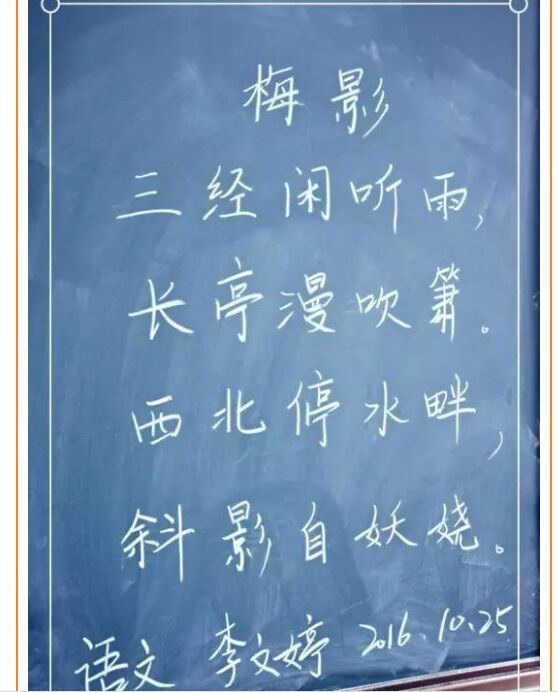 梅影
三经闲听雨,
长亭漫吹箫。
西北停水畔,
斜影自妖娆。
语文 李文婷 2016.10.25